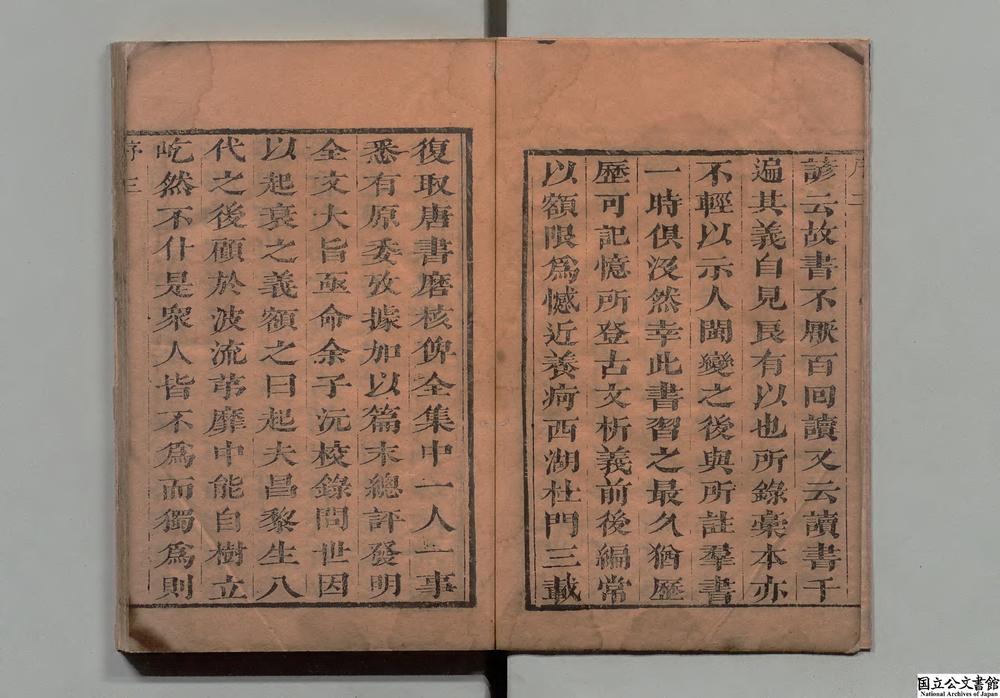 序二
諺云故書不厭百回讀又云讀書千
遍其義自見良有以也所錄稾本亦
不輕以示人閩變之後與所註羣書
一時俱沒然幸此書習之最久猶歷
歷可記憶所登古文析義前後編常
以額限爲憾近養疴西湖杜門三載
復取唐書磨核俾全集中一人一事
悉有原委攷據加以篇末總評發明
全文大旨亟命余子沅校錄問世因
以起衰之義額之曰起夫昌黎生八
代之後顧於波流茅靡中能自樹立
屹然不仆是衆人皆不爲而獨爲則
序三
国立公文書館
National Archives of Japan